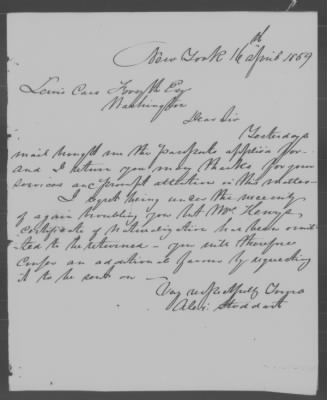 New York 16th April 1859
Lewis Cass Forsyth Esq
Washington
Dear Sir
Yesterdays
mail brought me the passports applied for
and I return you many thanks for your
services and prompt attention in this matter
I regret being under the necessity
of again troubling you but Mr. Henrys
Certificate of Naturalization has been omit
ted to be returned - you will therefore
confer an additional favor by requesting
it to be sent on -
Very respectfully Yours
Alex. Stoddart